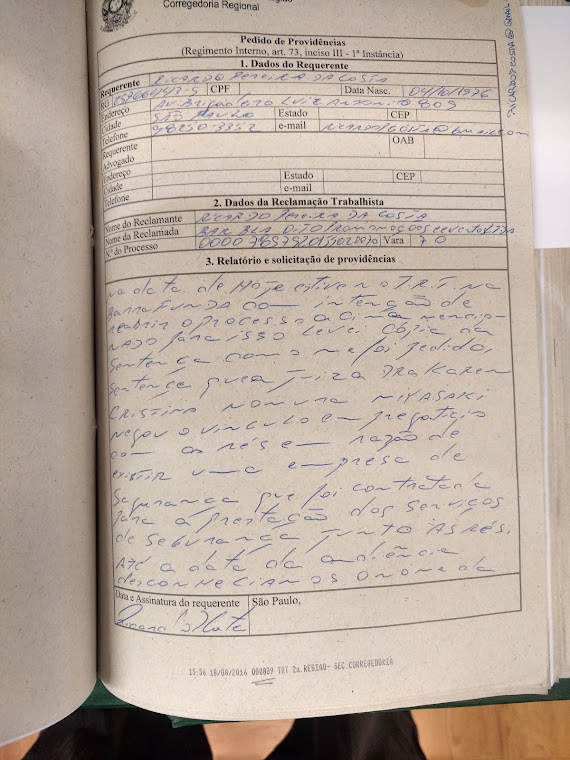 Corregedoria Regional
RICARDOPCOSTA@GMAIL
Pedido de Providências
(Regimento Interno, art. 73, inciso III - 1ª Instância)
1. Dados do Requerente
Requerente RICARDO PEREIRA DA COSTA
RG CPF Data Nasc. 04/10/1976
Endereço AV. BRIGADEIRO LUIZ ANTONIO 809
Cidade SÃO PAULO Estado CEP
Telefone 98250-3352 e-mail
Requerente OAB
Advogado
Endereço
Cidade Estado CEP
Telefone e-mail
2. Dados da Reclamação Trabalhista
Nome do Reclamante RICARDO PEREIRA DA COSTA
Nome da Reclamada BAR BLA DITO
N.º do Processo Vara 70
3. Relatório e solicitação de providências
na data de Hoje estive no T.R.T. na
BARRA FUNDA com intenção de
reabrir o processo acima mencio-
NADO para isso Levei cópia da
Sentença como me foi pedido,
Sentença que a Juiza DRA KAREN
CRISTINA NOMURA MIYASAKI
negou o vinculo empregaticio
com as rés em razão de
existir uma empresa de
Segurança que foi contratada
para a prestação dos serviços
de SEGURANÇA JUNTO AS RÉS.
ATÉ a data da audiência
desconHECIAMOS O nome da
Data e Assinatura do requerente São Paulo,
15:56 18/08/2016 000809 TRT 2a.REGIAO- SEC.CORREGEDORIA